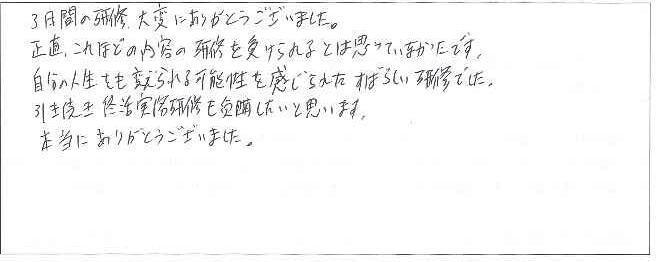 3日間の研修、大変にありがとうございました。
正直、これほどの内容の研修を受けられるとは思っていなかったです。
自分の人生をも変えられる可能性を感じられたすばらしい研修でした。
引き続き 終活実務研修も受講したいと思います。
本当にありがとうございました。